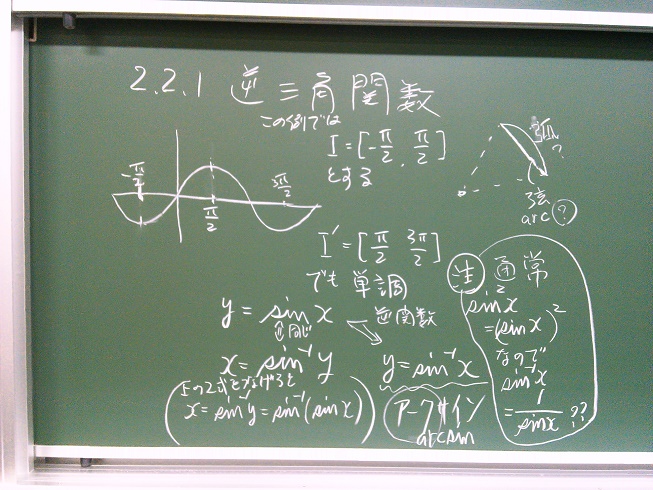 2.2.1 逆三角関数
この例では
I = [-π/2, π/2]
とする
-π/2
π/2
3π/2
弧?
弦
arc ?
I' = [π/2 3π/2]
でも 単調
y = sin x
⇕同じ
逆関数
x = sin⁻¹ y
y = sin⁻¹ x
上の2式をつなげると
x = sin⁻¹ y = sin⁻¹(sin x)
アークサイン
arcsin
注 通常
sin²x
= (sin x)²
なので
sin⁻¹x
= 1/sin x ??